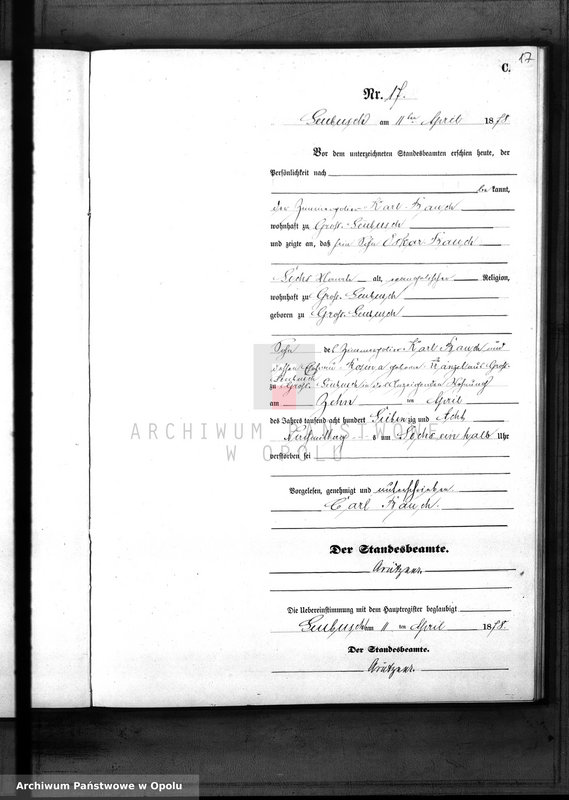 17
C.
Nr. 17.
Leubusch am 11ten April 1878
Vor dem unterzeichneten Standesbeamten erschien heute, der
Persönlichkeit nach
be kannt,
der Karl Rauch
wohnhaft zu Groß-Leubusch
und zeigte an, daß sein Sohn Oskar Rauch
Sechs alt, evangelischer Religion,
wohnhaft zu Groß-Leubusch
geboren zu Groß-Leubusch
Sohn des Karl Rauch und
dessen Ehefrau Rosina geborene aus Groß-
Leubusch
zu Groß-Leubusch in des Wohnung
am Zehn ten April
des Jahres tausend acht hundert Sieben zig und Acht
Nachmittag s um Sechs ein halb Uhr
verstorben sei
Vorgelesen, genehmigt und unterschrieben
Carl Rauch.
Der Standesbeamte.
Die Uebereinstimmung mit dem Hauptregister beglaubigt
Leubusch am 11 ten April 1878.
Der Standesbeamte.
ARCHIWUM PAŃSTWOWE
W OPOLU
Archiwum Państwowe w Opolu